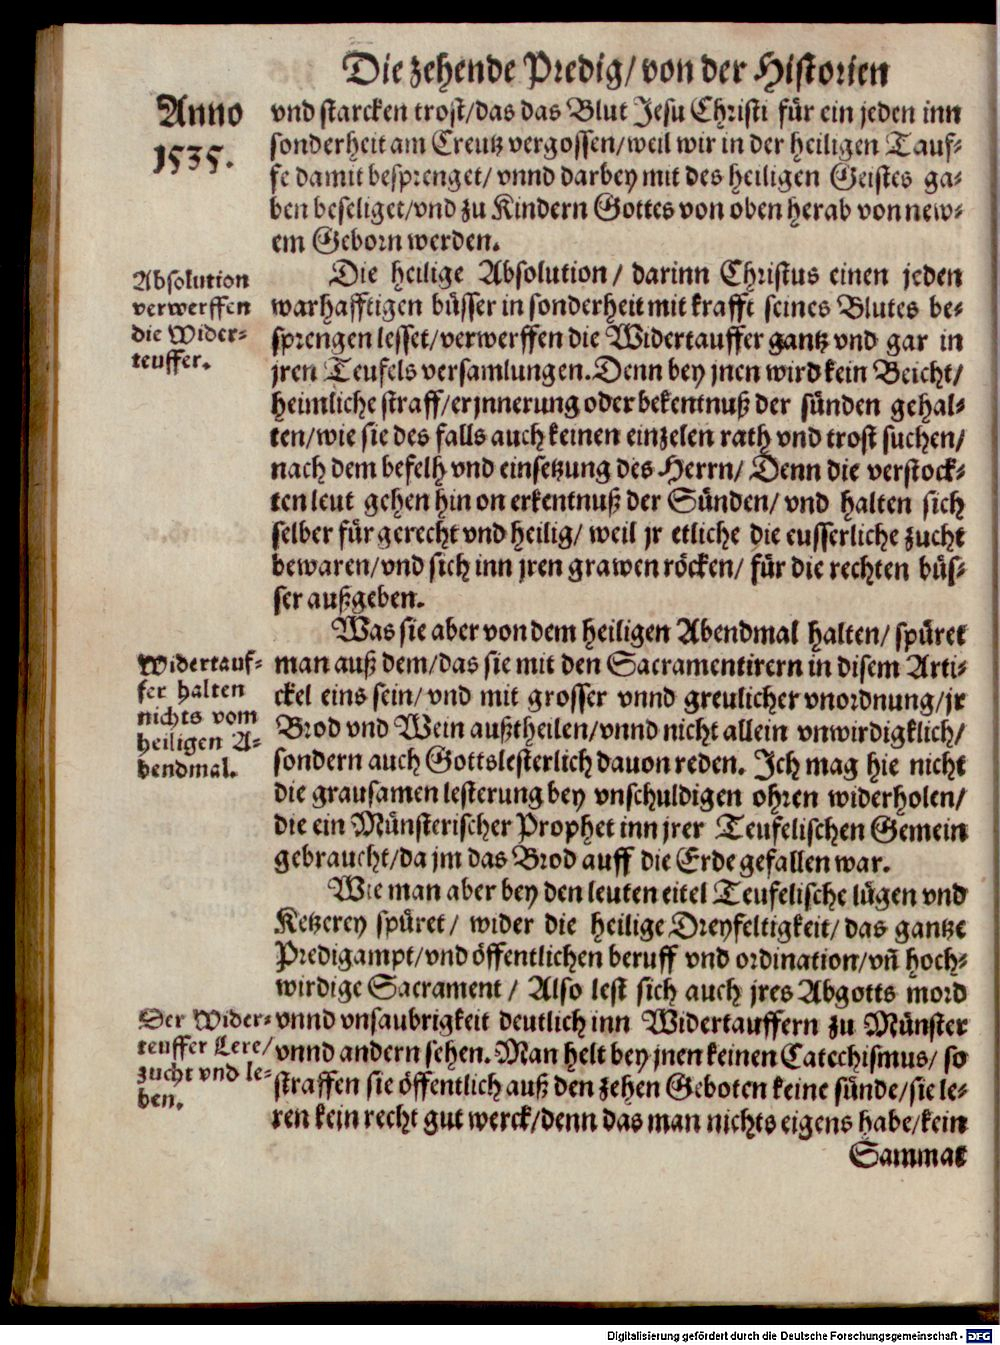 Die zehende Predig/ von der Historien
Anno
1535.
vnd starcken trost/das das Blut Jesu Christi für ein jeden inn
sonderheit am Creutz vergossen/weil wir in der heiligen Tauf-
fe damit besprenget/ vnnd darbey mit des heiligen Geistes ga-
ben beseliget/vnd zu Kindern Gottes von oben herab von new-
em Geborn werden.
Absolution
verwerffen
die Wider-
teuffer.
Die heilige Absolution/ darinn Christus einen jeden
warhafftigen büsser in sonderheit mit krafft seines Blutes be-
sprengen lesset/verwerffen die Widertauffer gantz vnd gar in
jren Teufels versamlungen. Denn bey jnen wird kein Beicht/
heimliche straff/erjnnerung oder bekentnuß der sünden gehal-
ten/wie sie des falls auch keinen einzelen rath vnd trost suchen/
nach dem befelh vnd einsetzung des Herrn/ Denn die verstock-
ten leut gehen hin on erkentnuß der Sünden/ vnd halten sich
selber für gerecht vnd heilig/ weil jr etliche die eusserliche zucht
bewaren/vnd sich inn jren grawen röcken/ für die rechten büs-
ser außgeben.
Widertauf-
fer halten
nichts vom
heiligen A-
bendmal.
Was sie aber von dem heiligen Abendmal halten/ spüret
man auß dem/das sie mit den Sacramentirern in disem Arti-
ckel eins sein/ vnd mit grosser vnnd greulicher vnordnung/jr
Brod vnd Wein außtheilen/vnnd nicht allein vnwirdigklich/
sondern auch Gottslesterlich dauon reden. Ich mag hie nicht
die grausamen lesterung bey vnschuldigen ohren widerholen/
die ein Münsterischer Prophet inn jrer Teufelischen Gemein
gebraucht/da jm das Brod auff die Erde gefallen war.
Wie man aber bey den leuten eitel Teufelische lügen vnd
Ketzerey spüret/ wider die heilige Dreyfeltigkeit/ das gantze
Predigampt/vnd öffentlichen beruff vnd ordination/vñ hoch-
wirdige Sacrament/ Also lest sich auch jres Abgotts mord
Der Wider-
teuffer Lere/
zucht vnd le-
ben.
vnnd vnsaubrigkeit deutlich inn Widertauffern zu Münster
vnnd andern sehen. Man helt bey jnen keinen Catechismus/ so
straffen sie öffentlich auß den zehen Geboten keine sünde/sie le-
ren kein recht gut werck/denn das man nichts eigens habe/kein
Sammat
Digitalisierung gefördert durch die Deutsche Forschungsgemeinschaft - DFG